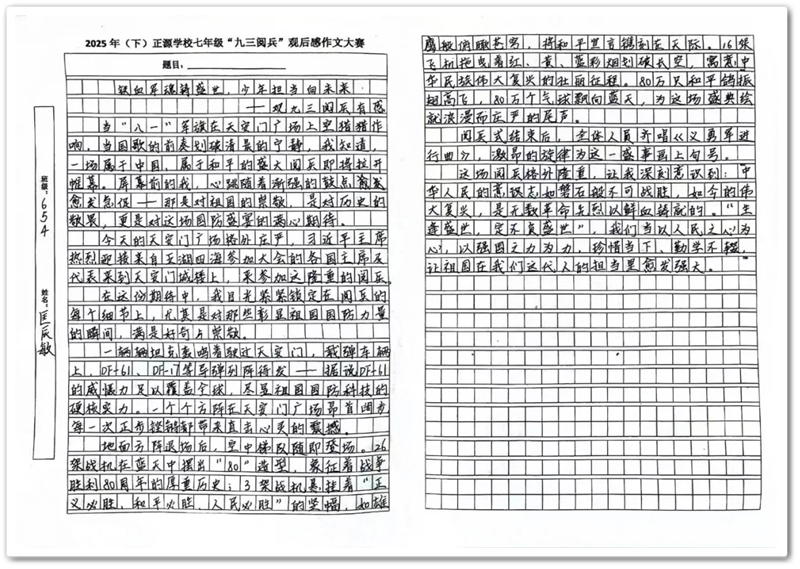 2025年（下）正源学校七年级“九三阅兵”观后感作文大赛
题目：
班级：654
姓名：匡辰敏
铁血军魂铸盛世，少年担当向未来
——观九三阅兵有感
当“八一”军旗在天安门广场上空猎猎作
响，当国歌的前奏划破清晨的宁静，我知道，
一场属于中国，属于和平的盛大阅兵即将拉开
帷幕。屏幕前的我，心跳随着渐强的鼓点愈发
愈发急促——那是对祖国的崇敬，是对历史的
敬畏，更是对这场国防盛宴的满心期待。
今天的天安门广场格外庄严，习近平主席
热烈迎接来自五湖四海参加大会的各国主席及
代表来到天安门城楼上，来参加这隆重的阅兵。
在这份期待中，我目光紧紧锁定在阅兵的
每个细节上，尤其是对那些彰显祖国国防力量
的瞬间，满是好奇与崇敬。
一辆辆坦克轰鸣着驶过天安门，载弹车辆
上，DF-61、DF-17等导弹列阵待发——据说DF-61
的威慑力足以覆盖全球，尽显祖国国防科技的
硬核实力。一个个方阵在天安门广场昂首阔步
每一次正步铿锵都带来直击心灵的震撼。
地面方阵退场后，空中梯队随即登场。26
架战机在蓝天中摆出“80”造型，象征着战争
胜利80周年的厚重历史；3架战机悬挂着“正
义必胜，和平必胜，人民必胜”的竖幅，如雄
鹰般俯瞰苍穹，将和平宣言镌刻在天际。16架
飞机拖曳着红、黄、蓝彩烟划破长空，寓意中
华民族伟大复兴的壮丽征程。80万只和平鸽振
翅高飞，80万个气球飘向蓝天，为这场盛典绘
就浪漫而庄严的尾声。
阅兵式结束后，全体人员齐唱《义勇军进
行曲》，激昂的旋律为这一盛事画上句号。
这场阅兵格外隆重，让我深刻意识到：中
华人民的意志如磐石般不可战胜，如今的伟
大复兴，是无数革命先烈以鲜血铸就的。“生
逢盛世，定不负盛世”，我们当以人民之心为
心，以强国之力为力，珍惜当下，勤学不辍，
让祖国在我们这代人的担当里愈发强大。